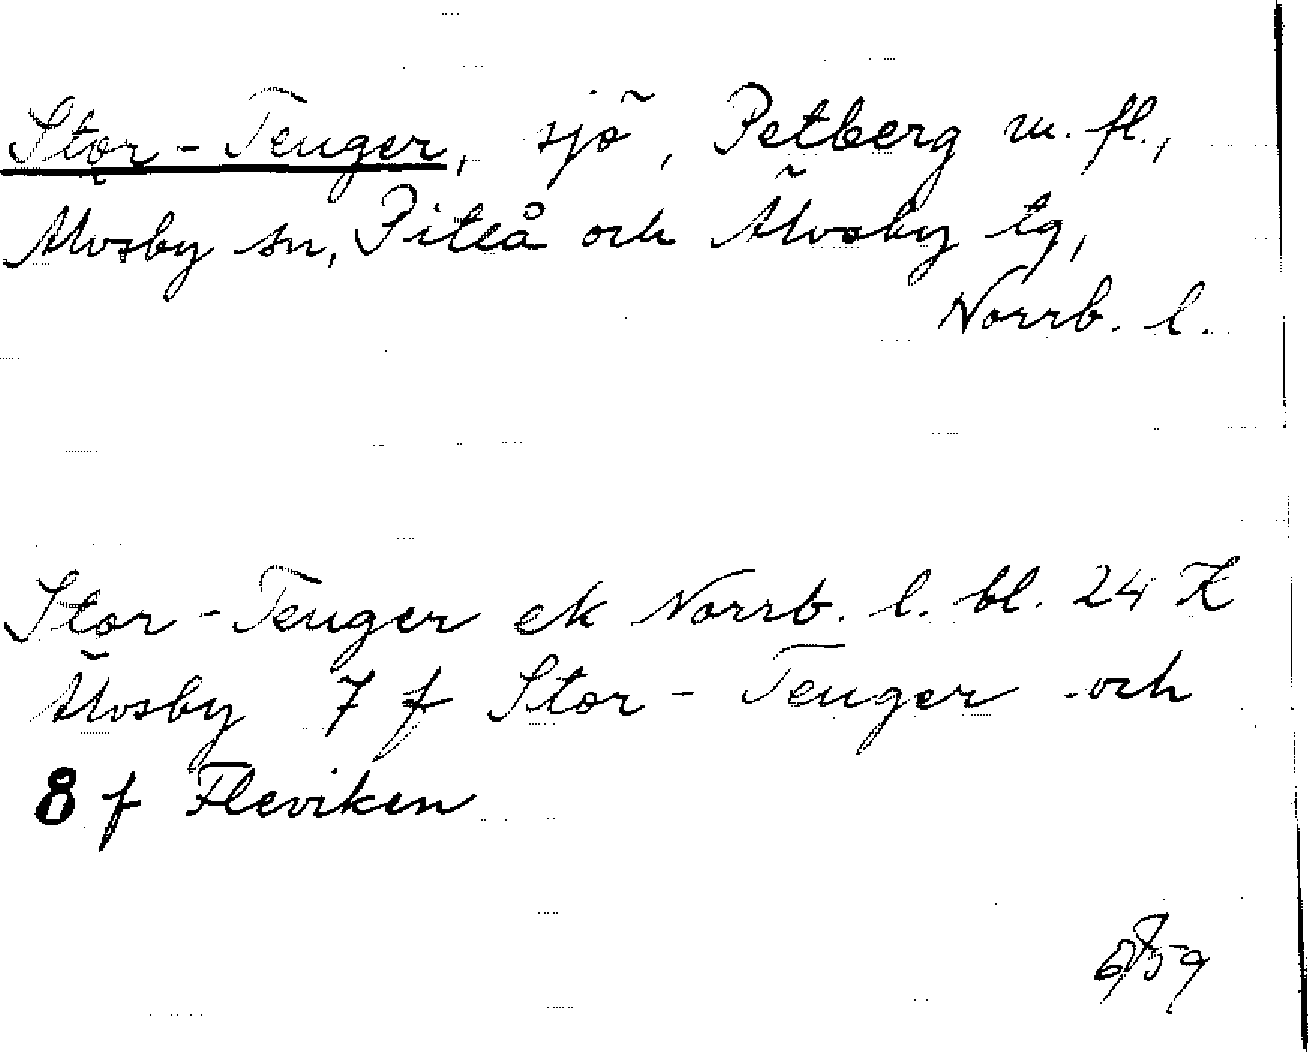 Stor-Tenger, sjö, Petberg m. fl.,
Älvsby sn, Piteå och Älvsby tg,
Norrb. l.
Stor-Tenger ek Norrb. l. bl. 24 K
Älvsby 7 f Stor-Tenger och
8 f Fleviken